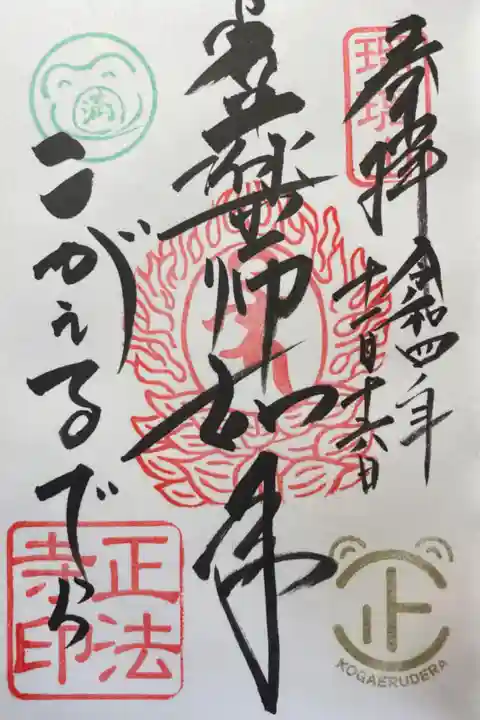 奉拝
令和四年
十一月十六日
薬師如来
こがえるでら
満
正法
寺印
正
KOGAERUDERA